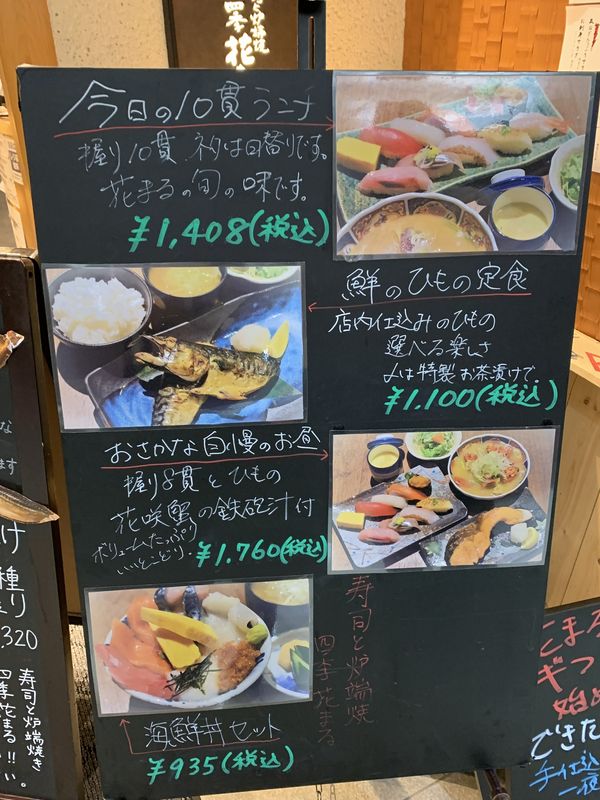 四季花
今日の10貫ランチ
握り10貫 ネタは日替りです。
花まるの旬の味です。
¥1,408(税込)
鮮のひもの定食
店内仕込みのひもの
選べる楽しさ
〆は特製お茶漬けで、
¥1,100(税込)
おさかな自慢のお昼
握り8貫とひもの
花咲蟹の鉄砲汁付
ボリュームたっぷり
いいとこどり。
¥1,760(税込)
海鮮丼セット
¥935(税込)
寿司と炉端焼
四季花まる
な
ます
け
種
り
,320
寿司と炉端焼き
四季花まる!!
こまる
ギフ
始め
できた
手仕込
一夜